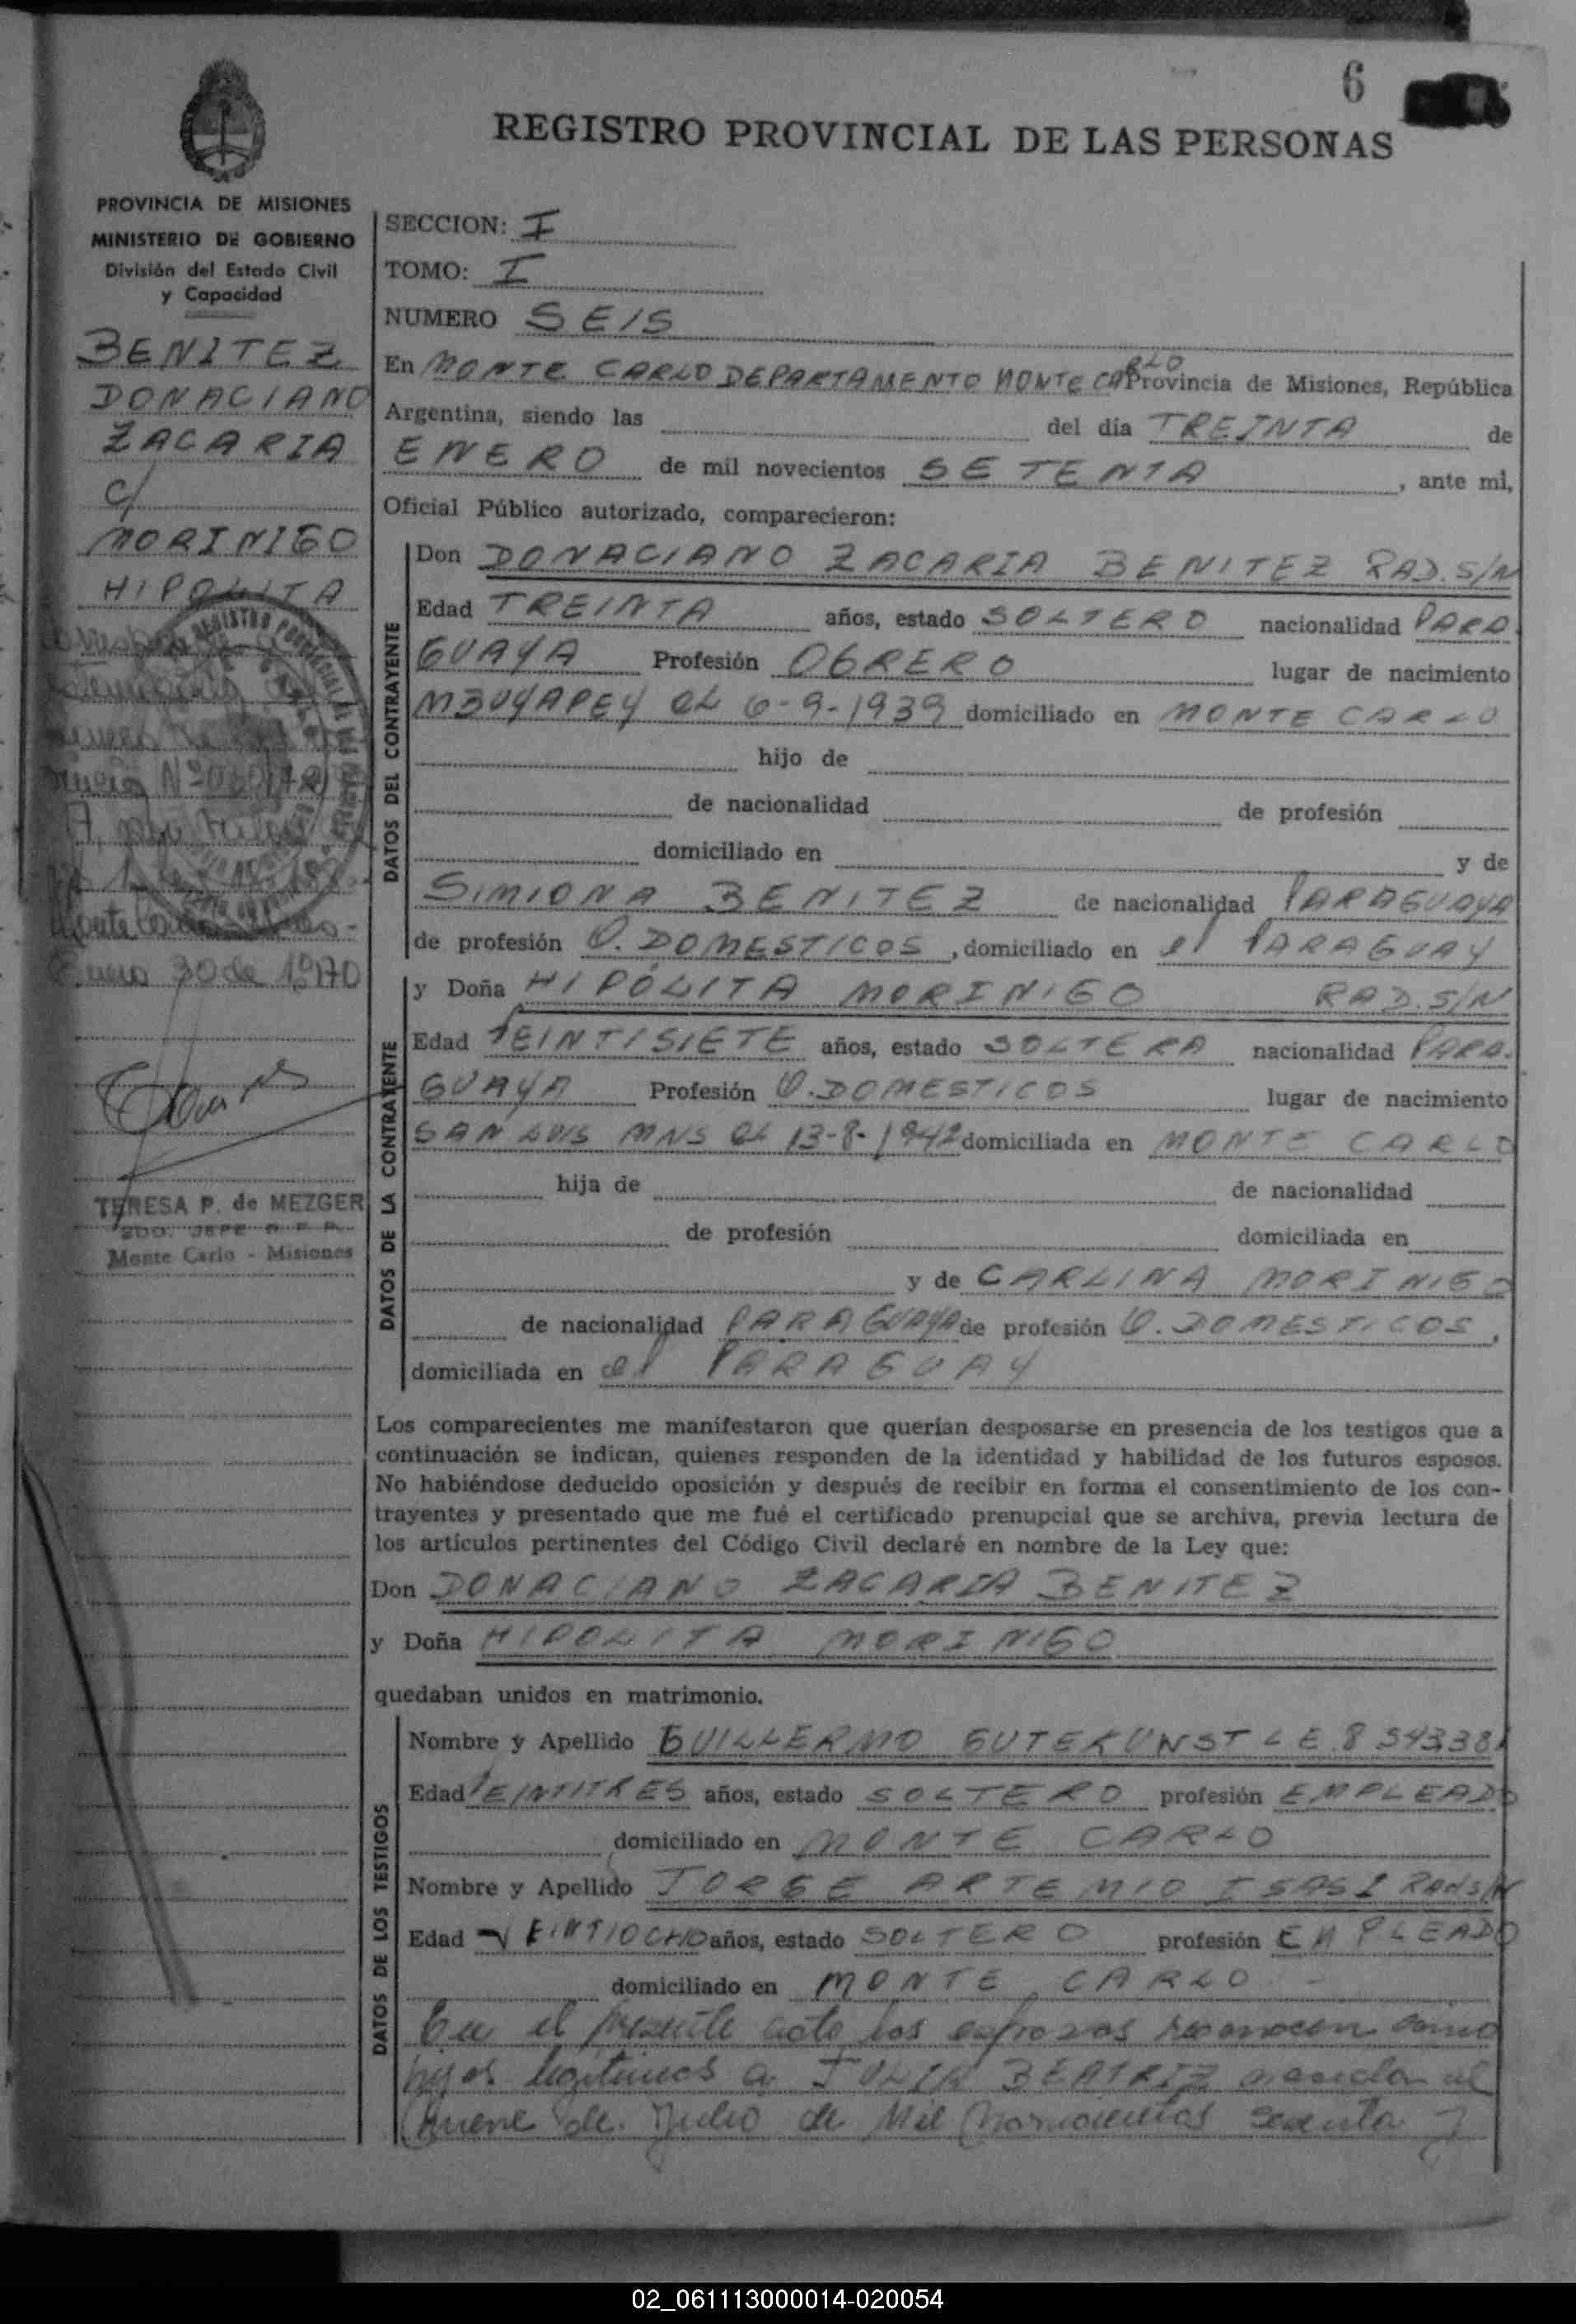 6
REGISTRO PROVINCIAL DE LAS PERSONAS
PROVINCIA DE MISIONES
MINISTERIO DE GOBIERNO
División del Estado Civil
y Capacidad
BENITEZ
DONACIANO
ZACARIA
c/
MORINIGO
HIPOLITA
Enero 30 de 1970
TERESA P. de MEZGER
2DO. JEFE
Monte Carlo - Misiones
SECCION: I
TOMO: I
NUMERO SEIS
En MONTE CARLO DEPARTAMENTO MONTE CARLO Provincia de Misiones, República
Argentina, siendo las del día TREINTA de
ENERO de mil novecientos SETENTA, ante mi,
Oficial Público autorizado, comparecieron:
DATOS DEL CONTRAYENTE
Don DONACIANO ZACARIA BENITEZ RAD. S/N
Edad TREINTA años, estado SOLTERO nacionalidad PARA
GUAYA Profesión OBRERO lugar de nacimiento
MBUYAPEY EL 6-9-1939 domiciliado en MONTE CARLO
hijo de
de nacionalidad de profesión
domiciliado en y de
SIMIONA BENITEZ de nacionalidad PARAGUAYA
de profesión Q. DOMESTICOS, domiciliado en el PARAGUAY
DATOS DE LA CONTRAYENTE
y Doña HIPÓLITA MORINIGO RAD. S/N
Edad VEINTISIETE años, estado SOLTERA nacionalidad PARA.
GUAYA Profesión Q. DOMESTICOS lugar de nacimiento
SAN LUIS MNS EL 13-8-1942 domiciliada en MONTE CARLO
hija de de nacionalidad
de profesión domiciliada en
y de CARLINA MORINIGO
de nacionalidad PARAGUAYA de profesión Q. DOMESTICOS,
domiciliada en el PARAGUAY
Los comparecientes me manifestaron que querían desposarse en presencia de los testigos que a
continuación se indican, quienes responden de la identidad y habilidad de los futuros esposos.
No habiéndose deducido oposición y después de recibir en forma el consentimiento de los con-
trayentes y presentado que me fué el certificado prenupcial que se archiva, previa lectura de
los artículos pertinentes del Código Civil declaré en nombre de la Ley que:
Don DONACIANO ZACARIA BENITEZ
y Doña HIPOLITA MORINIGO
quedaban unidos en matrimonio.
DATOS DE LOS TESTIGOS
Nombre y Apellido GUILLERMO GUTEKUNST L E. 8 543381
Edad VEINTITRES años, estado SOLTERO profesión EMPLEADO
domiciliado en MONTE CARLO
Nombre y Apellido JORGE ARTEMIO ISASI RAD S/N
Edad VEINTIOCHO años, estado SOLTERO profesión EMPLEADO
domiciliado en MONTE CARLO -
En el presente acto los esposos reconocen como
hijos legitimos a JULIA BEATRIZ nacida el
nueve de Julio de Mil Novecientos sesenta y
02_061113000014-020054